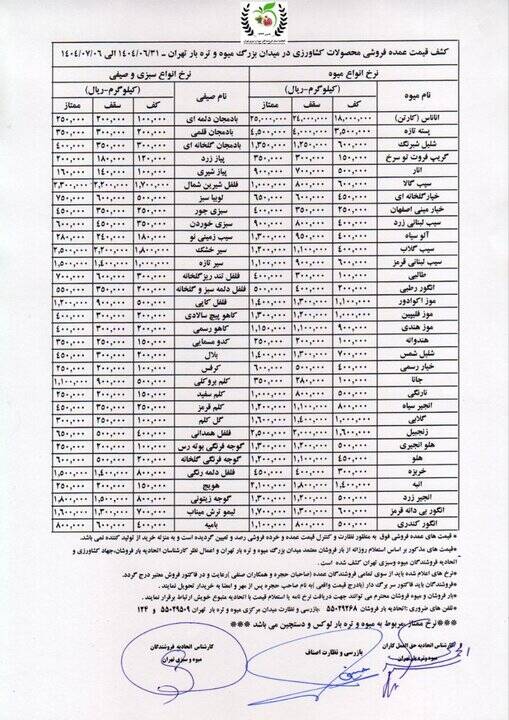 کشف قیمت عمده فروشی محصولات کشاورزی در میدان بزرگ میوه و تره بار تهران ــ ۱۴۰۴/۰۶/۳۱ الی ۱۴۰۴/۰۷/۰۶
نرخ انواع میوه نرخ انواع سبزی و صیفی
نام میوه (کیلوگرم-ریال) نام صیفی (کیلوگرم-ریال)
کف سقف ممتاز کف سقف ممتاز
آناناس (کارتن) ۱۸,۰۰۰,۰۰۰ ۲۴,۰۰۰,۰۰۰ ۲۵,۰۰۰,۰۰۰ بادمجان دلمه ای ۱۰۰,۰۰۰ ۲۰۰,۰۰۰ ۲۵۰,۰۰۰
پسته تازه ۳,۵۰۰,۰۰۰ ۴,۰۰۰,۰۰۰ ۴,۵۰۰,۰۰۰ بادمجان قلمی ۲۰۰,۰۰۰ ۳۰۰,۰۰۰ ۳۵۰,۰۰۰
شلیل شبرنگ ۶۰۰,۰۰۰ ۱,۲۵۰,۰۰۰ ۱,۳۵۰,۰۰۰ بادمجان گلخانه ای ۳۰۰,۰۰۰ ۳۵۰,۰۰۰ ۴۰۰,۰۰۰
گریپ فروت تو سرخ ۱۵۰,۰۰۰ ۳۰۰,۰۰۰ ۳۵۰,۰۰۰ پیاز زرد ۱۲۰,۰۰۰ ۱۸۰,۰۰۰ ۲۰۰,۰۰۰
انار ۵۰۰,۰۰۰ ۷۰۰,۰۰۰ ۹۰۰,۰۰۰ پیاز شیری ۱۰۰,۰۰۰ ۱۴۰,۰۰۰ ۱۶۰,۰۰۰
سیب گالا ۶۰۰,۰۰۰ ۸۰۰,۰۰۰ ۱,۰۰۰,۰۰۰ فلفل شیرین شمال ۱,۷۰۰,۰۰۰ ۲,۲۰۰,۰۰۰ ۲,۳۰۰,۰۰۰
خیارگلخانه ای ۶۰۰,۰۰۰ لوبیا سبز ۵۰۰,۰۰۰ ۶۰۰,۰۰۰ ۷۵۰,۰۰۰
خیار مینی اصفهان ۳۵۰,۰۰۰ ۴۰۰,۰۰۰ سبزی جور ۳۵۰,۰۰۰ ۴۵۰,۰۰۰
سیب لبنانی زرد ۴۰۰,۰۰۰ ۸۰۰,۰۰۰ ۹۰۰,۰۰۰ سبزی خوردن ۳۵۰,۰۰۰ ۴۵۰,۰۰۰ ۶۰۰,۰۰۰
آلو سیاه ۴۰۰,۰۰۰ ۹۵۰,۰۰۰ ۱,۳۰۰,۰۰۰ سیب زمینی نو ۱۸۰,۰۰۰ ۲۴۰,۰۰۰ ۲۸۰,۰۰۰
سیب گلاب ۴۰۰,۰۰۰ ۱,۱۰۰,۰۰۰ ۱,۲۰۰,۰۰۰ سیر خشک ۱,۸۰۰,۰۰۰ ۲,۲۰۰,۰۰۰ ۲,۵۰۰,۰۰۰
سیب لبنانی قرمز ۶۰۰,۰۰۰ ۹۰۰,۰۰۰ ۱,۱۰۰,۰۰۰ سیر تازه ۱,۰۰۰,۰۰۰ ۱,۴۰۰,۰۰۰ ۱,۵۰۰,۰۰۰
طالبی ۱۰۰,۰۰۰ ۳۰۰,۰۰۰ ۴۰۰,۰۰۰ فلفل تند ریز گلخانه ۳۰۰,۰۰۰ ۶۰۰,۰۰۰ ۷۰۰,۰۰۰
انگور رطبی ۲۰۰,۰۰۰ ۴۰۰,۰۰۰ ۵۰۰,۰۰۰ فلفل دلمه سبز و گلخانه ۲۰۰,۰۰۰ ۳۵۰,۰۰۰ ۵۵۰,۰۰۰
موز اکوادور ۱,۱۰۰,۰۰۰ ۱,۳۰۰,۰۰۰ ۱,۴۰۰,۰۰۰ فلفل کاپی ۵۰۰,۰۰۰ ۹۰۰,۰۰۰ ۱,۲۰۰,۰۰۰
موز فلیپین ۱,۰۰۰,۰۰۰ ۱,۲۰۰,۰۰۰ ۱,۳۰۰,۰۰۰ کاهو پیچ سالادی ۲۰۰,۰۰۰ ۳۰۰,۰۰۰ ۴۰۰,۰۰۰
موز هندی ۹۰۰,۰۰۰ ۱,۱۰۰,۰۰۰ ۱,۱۵۰,۰۰۰ کاهو رسمی ۲۰۰,۰۰۰ ۳۰۰,۰۰۰ ۴۰۰,۰۰۰
هندوانه ۱۰۰,۰۰۰ ۲۰۰,۰۰۰ ۲۵۰,۰۰۰ کدو مسمایی ۱۵۰,۰۰۰ ۲۵۰,۰۰۰ ۳۵۰,۰۰۰
شلیل شمس ۷۰۰,۰۰۰ ۱,۳۰۰,۰۰۰ ۱,۴۰۰,۰۰۰ بلال ۲۰۰,۰۰۰ ۳۰۰,۰۰۰ ۴۵۰,۰۰۰
خیار رسمی ۴۰۰,۰۰۰ ۵۰۰,۰۰۰ ۶۰۰,۰۰۰ کرفس ۱۰۰,۰۰۰ ۲۰۰,۰۰۰ ۲۵۰,۰۰۰
جانا ۱۰۰,۰۰۰ ۲۸۰,۰۰۰ ۳۵۰,۰۰۰ کلم بروکلی ۵۰۰,۰۰۰ ۹۰۰,۰۰۰ ۱,۱۰۰,۰۰۰
نارنگی ۵۰۰,۰۰۰ ۸۰۰,۰۰۰ ۱,۰۰۰,۰۰۰ کلم سفید ۱۵۰,۰۰۰ ۲۰۰,۰۰۰ ۳۵۰,۰۰۰
انجیر سیاه ۸۰۰,۰۰۰ ۱,۱۰۰,۰۰۰ ۱,۲۰۰,۰۰۰ کلم قرمز ۲۵۰,۰۰۰ ۳۵۰,۰۰۰ ۴۵۰,۰۰۰
گلابی ۱,۰۰۰,۰۰۰ ۱,۴۰۰,۰۰۰ ۱,۶۰۰,۰۰۰ گل کلم ۱۰۰,۰۰۰ ۲۰۰,۰۰۰ ۳۰۰,۰۰۰
زنجبیل ۱,۶۰۰,۰۰۰ ۲,۰۰۰,۰۰۰ ۲,۵۰۰,۰۰۰ فلفل همدانی ۴۰۰,۰۰۰ ۵۰۰,۰۰۰ ۶۵۰,۰۰۰
هلو انجیری ۵۰۰,۰۰۰ ۱,۲۰۰,۰۰۰ ۱,۳۰۰,۰۰۰ گوجه فرنگی بوته رس ۱۰۰,۰۰۰ ۲۰۰,۰۰۰ ۲۵۰,۰۰۰
هلو ۴۰۰,۰۰۰ ۱,۰۰۰,۰۰۰ ۱,۲۰۰,۰۰۰ گوجه فرنگی گلخانه ۲۰۰,۰۰۰ ۴۰۰,۰۰۰ ۵۰۰,۰۰۰
خربزه ۳۰۰,۰۰۰ ۴۰۰,۰۰۰ ۴۵۰,۰۰۰ فلفل دلمه رنگی ۸۰۰,۰۰۰ ۱,۴۰۰,۰۰۰ ۱,۵۰۰,۰۰۰
انبه ۱,۴۰۰,۰۰۰ ۱,۸۰۰,۰۰۰ ۲,۱۰۰,۰۰۰ هویج ۱۵۰,۰۰۰ ۲۰۰,۰۰۰ ۲۵۰,۰۰۰
انجیر زرد ۵۰۰,۰۰۰ ۱,۲۰۰,۰۰۰ ۱,۳۰۰,۰۰۰ گوجه زیتونی ۵۰۰,۰۰۰ ۱,۵۰۰,۰۰۰ ۱,۸۰۰,۰۰۰
انگور بی دانه قرمز ۷۰۰,۰۰۰ ۱,۲۰۰,۰۰۰ ۱,۷۰۰,۰۰۰ لیمو ترش میناب ۷۰۰,۰۰۰ ۱,۳۰۰,۰۰۰ ۱,۶۰۰,۰۰۰
انگور کندری ۵۰۰,۰۰۰ ۸۰۰,۰۰۰ ۱,۱۰۰,۰۰۰ بامیه ۴۰۰,۰۰۰ ۶۰۰,۰۰۰ ۸۰۰,۰۰۰
*قیمت های عمده فروشی فوق به منظور نظارت و کنترل قیمت عمده و خرده فروشی رصد و تعیین گردیده است و به منزله خرید از تولید کننده نمی باشد.
*قیمت های مذکور بر اساس استعلام روزانه از بار فروشان معتمد میدان بزرگ میوه و تره بار تهران و اعمال نظر کارشناسان اتحادیه بار فروشان،جهاد کشاورزی و
اتحادیه فروشندگان میوه وسبزی تهران کشف شده است .
*نرخ های اعلام شده باید از سوی تمامی فروشندگان عمده (صاحبان حجره و همکاران صنفی )رعایت و در فاکتور فروش معتبر درج گردد.
*فروشندگان باید فاکتور سر برگ دار (بادرج قیمت واقعی )به نام صاحب حجره پس از مهر و امضا به خریدار تحویل نمایند .
*بار فروشان و میوه فروشان محترم می توانند جهت دریافت نرخ نامه یا استعلام قیمت با اتحادیه متبوع خویش ارتباط برقرار نمایند .
*تلفن های ضروری :اتحادیه بار فروشان ۵۵۰۲۹۲۶۸ ،بازرسی و نظارت میدان مرکزی میوه و تره بار تهران ۵۵۰۲۹۵۰۹ و ۱۲۴
*** نرخ ممتاز مربوط به میوه و تره بار لوکس و دستچین می باشد ***
کارشناس اتحادیه حق العمل کاران
میوه و تره بار تهران
بازرسی و نظارت اصناف
کارشناس اتحادیه فروشندگان
میوه و سبزی تهران